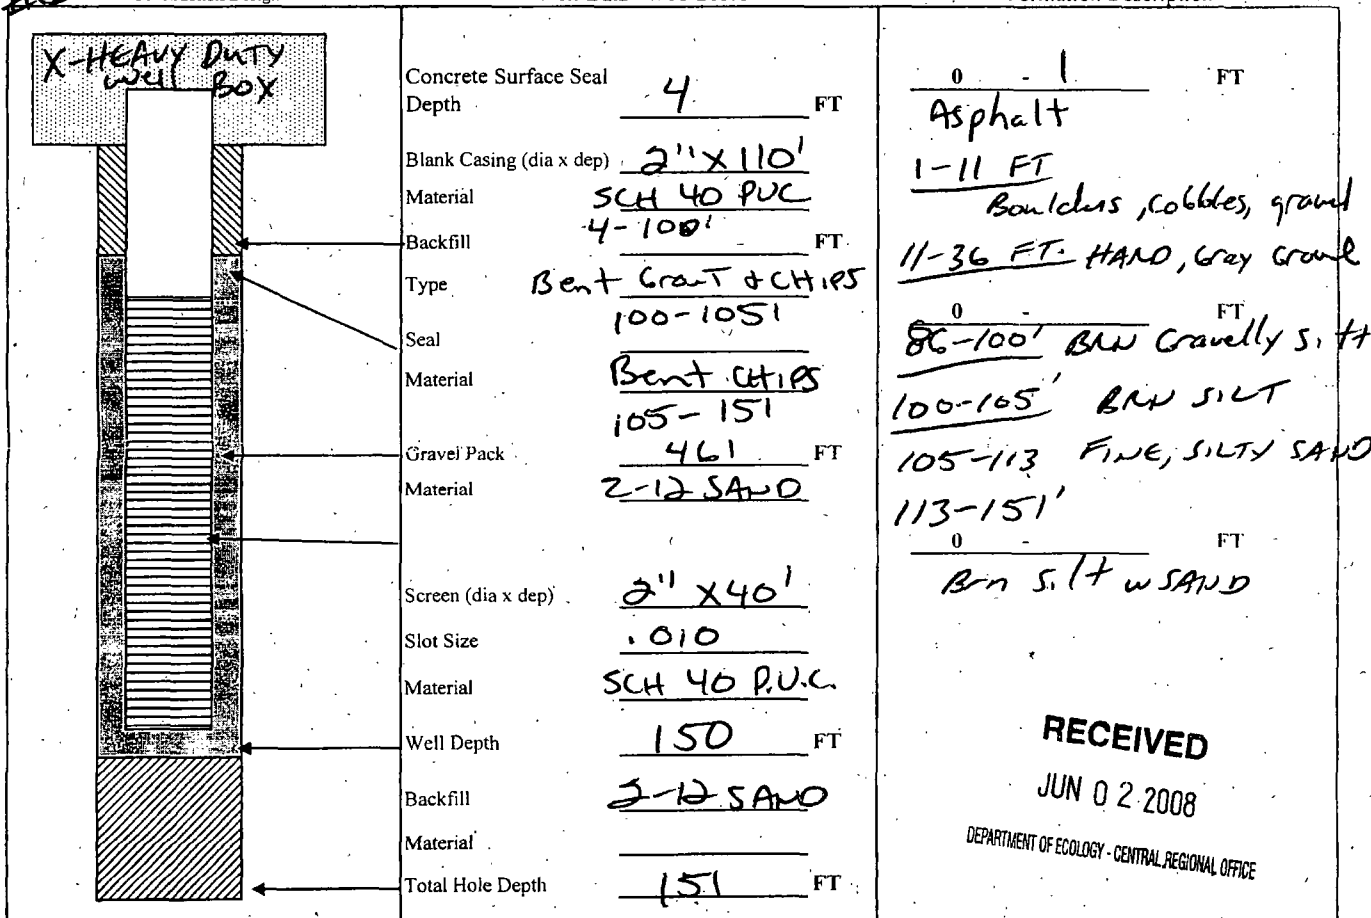 X-HEAVY DUTY
well BOX
Concrete Surface Seal
Depth 4 FT
Blank Casing (dia x dep) 2" X 110'
Material SCH 40 PVC
4-100'
Backfill FT
Type Bent Grout & CHIPS
100-105'
Seal
Material Bent CHIPS
105-151
Gravel Pack 46' FT
Material 2-12 SAND
Screen (dia x dep) 2" X40'
Slot Size .010
Material SCH 40 P.V.C.
Well Depth 150 FT
Backfill 2-12 SAND
Material
Total Hole Depth 151 FT
0 - 1 FT
Asphalt
1-11 FT
Boulders, cobbles, gravel
11-36 FT. HARD, Gray Gravel
0 - FT
86-100' BRN Gravelly Silt
100-105' BRN SILT
105-113 FINE, SILTY SAND
113-151'
0 - FT
Brn Silt w SAND
RECEIVED
JUN 02 2008
DEPARTMENT OF ECOLOGY - CENTRAL REGIONAL OFFICE